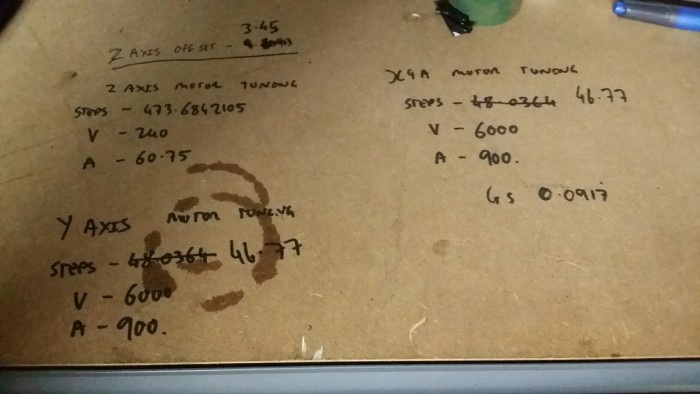 3.45
Z AXIS OFF SET -
Z AXIS MOTOR TUNING
STEPS - 473.6842105
V - 240
A - 60.75
Y AXIS MOTOR TUNING
STEPS - 48.0364 46.77
V - 6000
A - 900.
X4A MOTOR TUNING
STEPS - 48.0364 46.77
V - 6000
A - 900.
Gs 0.0917